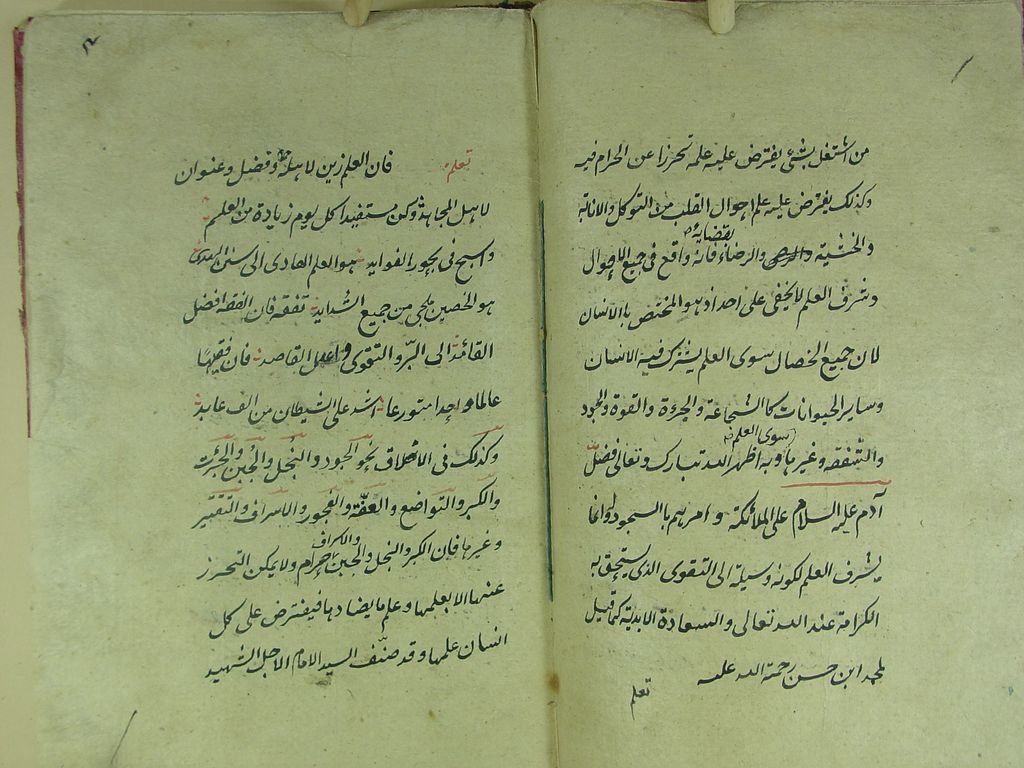 من اشتغل بشئ يفترض عليه علمه تحرزا عن الحرام فيه
وكذلك يفترض عليه علم احوال القلب من التوكل والانابة
والخشية والرضاء بقضائه فانه واقع فى جميع الاحوال
وشرف العلم لا يخفى على احد اذ هو المختص بالانسان
لان جميع الخصال سوى العلم يشترك فيه الانسان
وساير الحيوانات كالشجاعة والجرءة والقوة والجود
والشفقة وغيرها سوى العلم وبه اظهر الله تبارك وتعالى فضل
آدم عليه السلام على الملائكة وامرهم بالسجود له وانما
يشرف العلم لكونه وسيلة الى التقوى الذى يستحق به
الكرامة عند الله تعالى والسعادة الابدية كما قيل
لمحمد ابن حسن رحمة الله عليه
تعلم
٢
تعلم فان العلم زين لاهله وفضل وعنوان
لاهل المحامد وكن مستفيدا كل يوم زيادة من العلم
واسبح فى بحور الفوايد هو العلم الهادى الى سنن الهدى
هو الحصين ينجى من جميع الشدايد تفقه فان الفقه افضل
القائد الى البر والتقوى واعدل القاصد فان فقيها
عالما واحدا متورعا اشد على الشيطان من الف عابد
وكذلك فى الاخلاق نحو الجود والبخل والجبن والجرئت
والكبر والتواضع والعفة والفجور والاسراف والتقتير
وغيرها فان الكبر والبخل والجبن والاسراف حرام ولا يمكن التحرز
عنها الا بعلمها وعلم ما يضادها فيفترض على كل
انسان علمها وقد صنف السيد الامام الاجل الشهيد